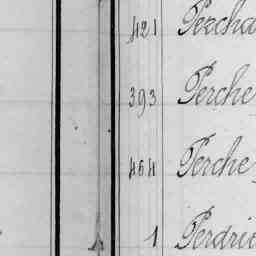 421 Percha
393 Perche
464 Perche
1 Perdri